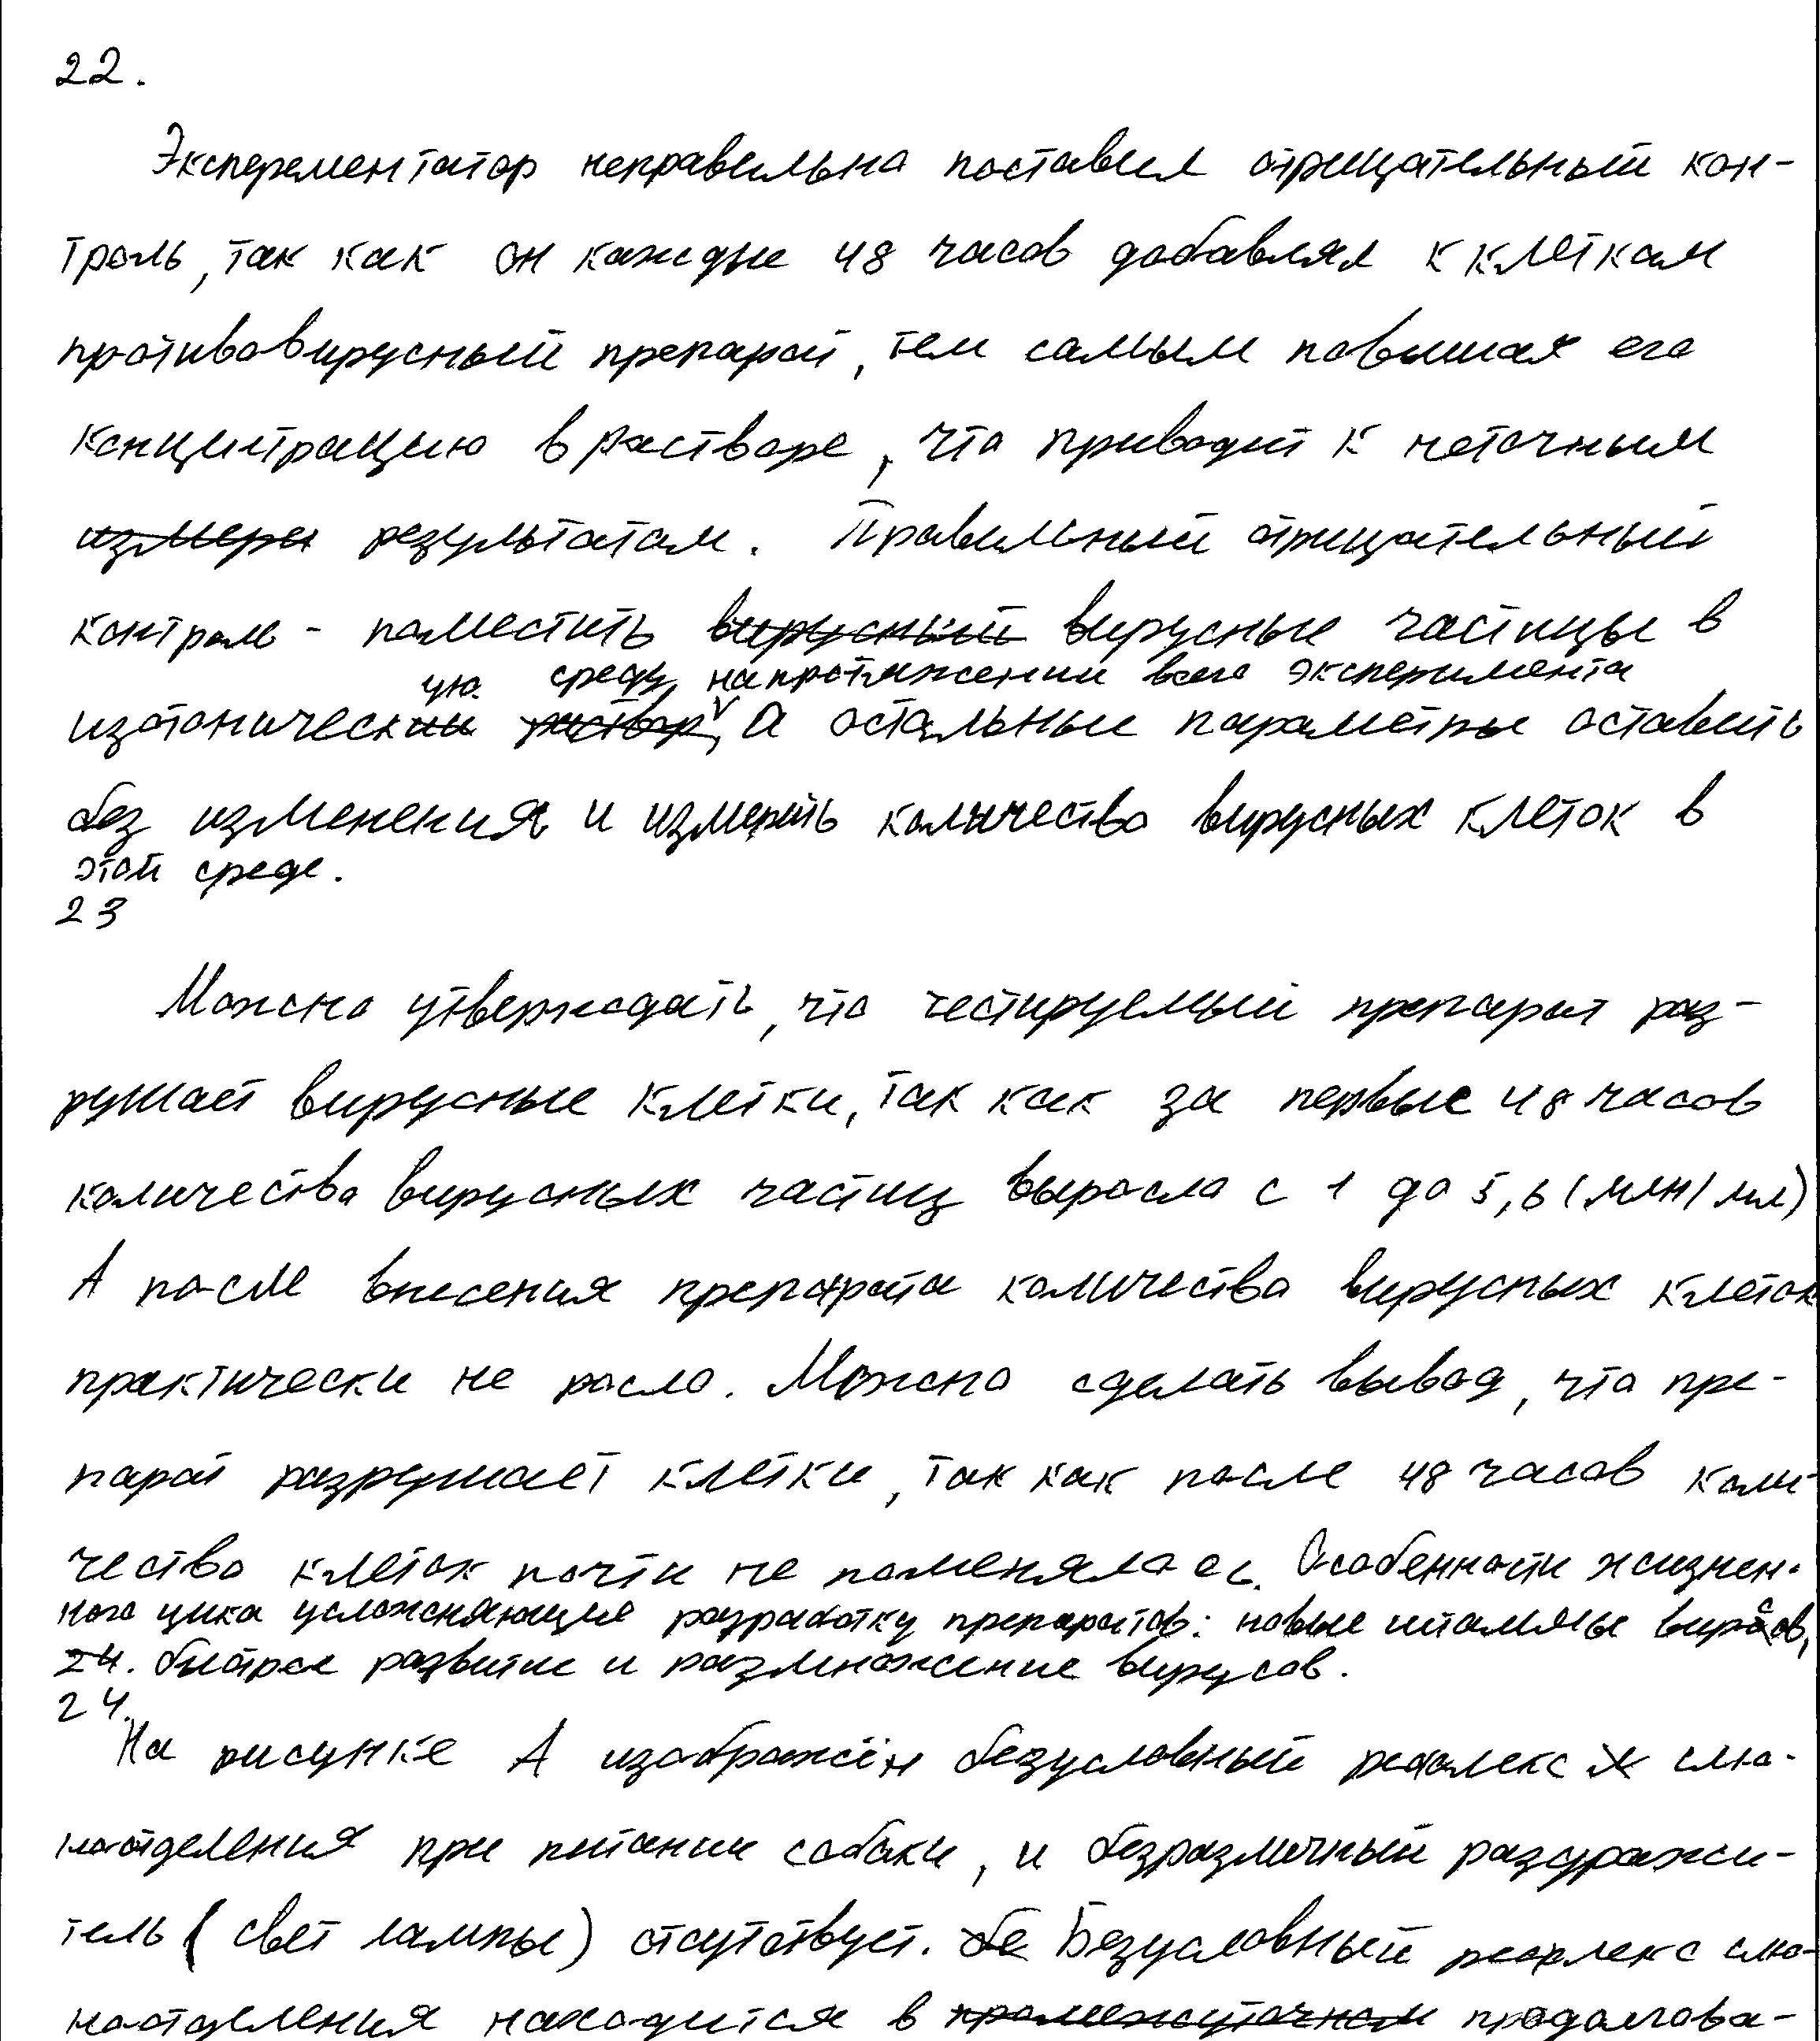 22.
Эксперементатор неправильно поставил отрицательный кон-
троль, так как он каждые 48 часов добавлял к клеткам
противовирусный препарат, тем самым повышая его
концентрацию в растворе, что приводит к неточным
измере результатам. Правильный отрицательный
контроль - поместить вирусный вирусные частицы в
ую среду, на протяжении всего эксперимента
изотонический раствор, а остальные параметры оставить
без изменения и измерить количество вирусных клеток в
этой среде.
23
Можно утверждать, что тестируемый препарат раз-
рушает вирусные клетки, так как за первые 48 часов
количество вирусных частиц выросла с 1 до 5,6 (млн/мл)
А после внесения препарата количество вирусных клеток
практически не росло. Можно сделать вывод, что пре-
парат разрушает клетки, так как после 48 часов коли-
чество клеток почти не поменялось. Особенности жизнен-
ного цика усложняющие разработку препаратов: новые штаммы вирусов,
24. быстрое развитие и размножение вирусов.
24.
На рисунке А изображён безусловный рефлекс слю-
ноотделения при питании собаки, и безразличный раздражи-
тель (свет лампы) отсутствует. бе Безусловный рефлекс слю-
ноотделения находится в промежуточном продолгова-